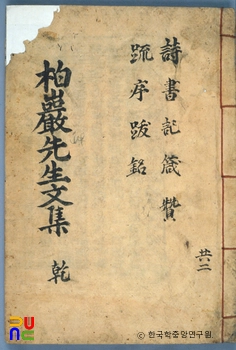 詩書記箴贊
疏序跋銘
共二
柏巖先生文集 乾
ⓒ 한국학중앙연구원